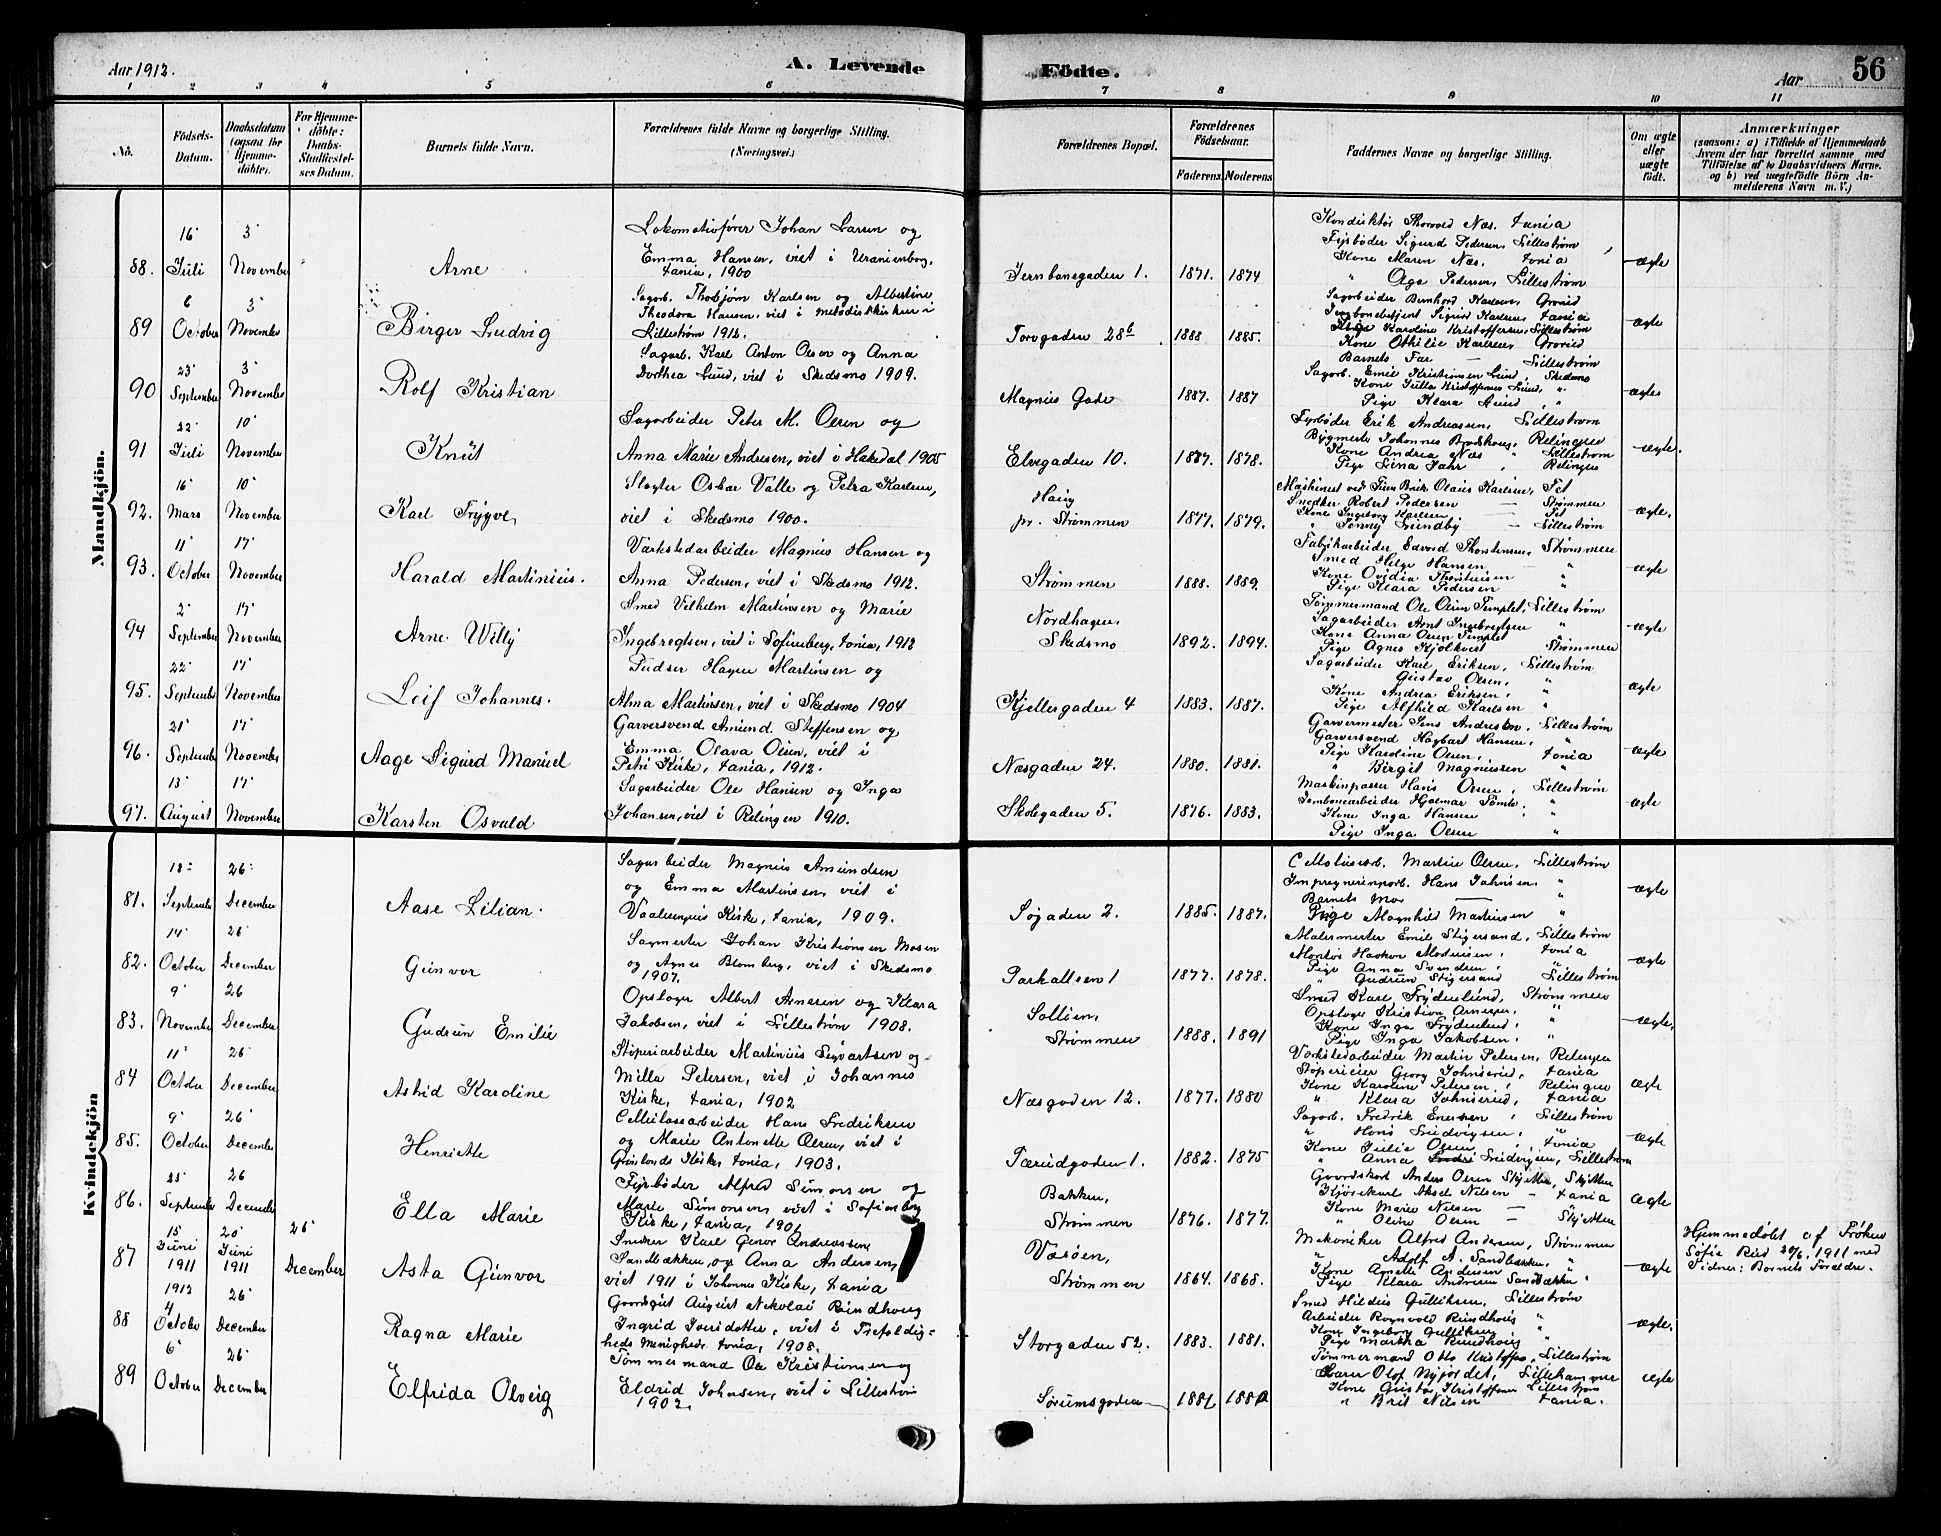 Aar 1912.
A. Levende
Fødte.
Aar
56
1 2 3 4 5 6 7 8 9 10 11
No.
Fødsels-Datum.
Daabsdatum (ogsaa for Hjemme-døbte).
For Hjemme-døbte: Daabs-Stadfæstel-ses Datum.
Barnets fulde Navn.
Forældrenes fulde Navne og borgerlige Stilling.
(Næringsvei.)
Forældrenes Bopæl.
Forældrenes Fødselsaar.
Faderens. Moderens.
Faddernes Navne og borgerlige Stilling.
Om ægte eller uægte født.
Anmærkninger
(saasom: a) i Tilfælde af Hjemmedaab
hvem der har forrettet samme med
Tilføielse af to Daabsvidners Navne.
og b) ved uægtefødte Børn An-
melderens Navn m. V.)
Mandkjøn.
88. 16 Juli 3 November Arne
Lokomotivfører Johan Larsen og
Emma Hansen, viet i Uranienborg,
Kania, 1900
Jernbanegaden 1. 1871. 1874
Konduktør Thorvald Næs. Kania
Fyrbøder Sigurd Pedersen, Lillestrøm
Kone Maren Næs. Kania
" Olga Pedersen, Lillestrøm
ægte
89 6 October 3 November Birger Ludvig
Sagarb. Thorbjørn Karlsen og Albertine
Theodora Hansen, viet i Metodistkirken i
Lillestrøm 1912.
Torvgaden 28b. 1888 1885.
Sagarbeider Bernhard Karlsen, Grorud
Jernbanebetjent Sigurd Karlsen, Kania
Pige Karoline Kristoffersen, Lillestrøm
Kone Othilie Karlsen, Grorud
ægte
90 23 September 3 November Rolf Kristian
Sagarb. Karl Anton Olsen og Anna
Dorthea Lund, viet i Skedsmo 1909.
Magnus Gade 1887. 1887
Barnets Far — Lillestrøm
Sagarb. Emil Kristiansen Lund, Skedsmo
Kone Julla Kristoffersen Lund, "
Pige Klara Lund, "
ægte
91 22 Juli 10 November Knut
Sagarbeider Peter M. Olsen og
Anna Marie Andresen, viet i Hakedal 1905
Elvegaden 10. 1877. 1878.
Fyrbøder Erik Andreassen, Lillestrøm
Bygmester Johannes Brodshaug, Relingen
Kone Andrea Næs " Lillestrøm
Pige Lina Jahr, Relingen
ægte.
92. 16 Mars 10 November Karl Trygve,
Slagter Oskar Valle og Petra Karlsen,
viet i Skedsmo 1900.
Haug
pr. Strømmen 1877. 1879.
Maskinist ved Tien Brik Olaus Karlsen, Fet
Snedker Robert Pedersen — Strømmen
Kone Ingeborg Karlsen — Fet
" Jenny Lundby — Lillestrøm
ægte.
93. 11 October 17 November Harald Martinius.
Værkstedarbeider Magnus Hansen og
Anna Pedersen, viet i Skedsmo 1912.
Strømmen 1888. 1889.
Fabrikarbeider Edvard Thorstensen, Strømmen
Smed Helge Hansen "
Kone Ovidia Thorstensen "
Pige Klara Pedersen "
ægte
94 2 September 17 November Arne Willy
Smed Vilhelm Martinsen og Marie
Ingebregtsen, viet i Sofienberg, Kania, 1912
Nordhagen,
Skedsmo 1892. 1894.
Tømmermand Ole Olsen Templet, Lillestrøm
Sagarbeider Arnt Ingebregtsen "
Kone Anna Olsen Templet "
Pige Agnes Kjolkvest Strømmen
ægte
95. 22 September 17 November Leif Johannes.
Pudser Hagen Martinsen og
Alma Martinsen, viet i Skedsmo 1904
Kjellergaden 4 1883. 1887.
Sagarbeider Karl Eriksen, Lillestrøm
" Gustav Olsen, "
Kone Andrea Eriksen, "
Pige Alfhild Karlsen "
ægte
96. 21 September 17 November Aage Sigurd Manuel
Garversvend Amund Steffensen og
Emma Olava Olsen, viet i
Petri Kirke, Kania, 1912.
Næsgaden 24. 1880. 1881.
Garvermester Jens Andresen, Lillestrøm
Garversvend Hagbart Hansen, "
Pige Karoline Olsen, Kania
" Birgit Magnussen "
ægte
97. 13 August 17 November Karsten Osvald
Sagarbeider Ole Hansen og Inga
Johansen, viet i Relingen 1910.
Skolegaden 5. 1876. 1883.
Maskinpasser Hans Olsen, Lillestrøm
Jernbanearbeider Hjalmar Tømte. "
Kone Inga Hansen "
Pige Inga Olsen "
ægte
Kvindekjøn
81. 18 September 26 December Aase Lilian.
Sagarbeider Magnus Amundsen
og Emma Martinsen, viet i
Vaalerengens Kirke, Kania, 1909.
Søgaden 2. 1885. 1887.
Cellulosearb. Martin Olsen, Lillestrøm
Impregneringsarb. Hans Jahnsen, "
Barnets Mor — "
Pige Magnhild Martinsen "
ægte
82. 14 October 26 December Gunvor
Sagmester Johan Kristiansen Mosen
og Agnes Blomberg, viet i Skedsmo
1907.
Parkalleen 1 1877. 1878.
Malermester Emil Stigersand, Lillestrøm
Montør Haakon Madsen, Kania
Pige Anna Svendsen, "
" Gudrun Stigersand Lillestrøm
ægte
83. 9 November 26 December Gudrun Emilie
Opslager Albert Arnesen og Klara
Jakobsen, viet i Lillestrøm 1908.
Sollien,
Strømmen 1888. 1891
Smed Karl Frydenlund, Strømmen
Opslager Kristian Arnesen, "
Kone Inga Frydenlund, "
Pige Inga Jakobsen, "
ægte,
84 11 October 26 December Astrid Karoline
Støperiarbeider Martinius Sigvartsen og
Milla Petersen, viet i Johannes
Kirke, Kania, 1902
Næsgaden 12. 1877. 1880
Værkstedarbeider Martin Petersen, Relingen
Støperieier Georg Johnsrud, Kania
Kone Karoline Petersen, Relingen
" Klara Johnsrud, Kania
ægte
85. 9 October 26 December Henriette
Cellulosearbeider Hans Fredriksen
og Marie Antonette Olsen, viet i
Grønlands Kirke, Kania, 1903.
Tærudgaden 1. 1882. 1875
Sagarb. Fredrik Enersen, Lillestrøm
" Hans Ludvigsen, "
Kone Julie Olsen, Kania
" Anna Ludvigsen, Lillestrøm
ægte
86. 25 September 26 December Ella Marie
Fyrbøder Alfred Simonsen og
Marie Simonsen, viet i Sofienberg
Kirke, Kania, 190
Bakken,
Strømmen 1876. 1877.
Gaardskarl Anders Olsen Skjetten, Skjetten
Kjørekarl Aksel Nilsen — Kania
Kone Marie Nilsen — "
" Oline Olsen — Skjetten
ægte
87 15 Juni 1911 20 Juni 1911 26 December Asta Gunvor
Snedker Karl Gunor Andreassen
Sandbækken, og Anna Andersen,
viet 1911 i Johannes Kirke, Kania
Vasøen,
Strømmen 1864. 1868.
Mekaniker Alfred Andersen, Strømmen
" Adolf A. Sandbækken, "
Kone Anette Andersen "
Pige Klara Andersen Sandbækken "
ægte
Hjemmedøbt af Frøken
Sofie Rud 20/6 1911 med
Vidner: Barnets Forældre.
88 1912 4 October 26 December Ragna Marie
Gaardsgut August Nikolai Rundhaug
Ingrid Iversdatter, viet i Trefoldig=
heds Menighed, Kania, 1908.
Storgaden 52. 1883. 1881.
Smed Hildus Gulliksen, Lillestrøm
Arbeider Ragnvald Rundhaug "
Kone Ingeborg Gulliksen "
Pige Martha Rundhaug "
ægte.
89 6 October 26 December Elfrida Olveig
Tømmermand Ole Kristiansen og
Eldrid Johnsen, viet i Lillestrøm
1902.
Sørumsgaden 1881 1880
Tømmermand Otto Kristoffers, Lillestrøm
Olof Nyjordet, Lillehammer
Kone Gusta Kristoffersen Lillestrøm
" Brit Nilsen Kania.
ægte